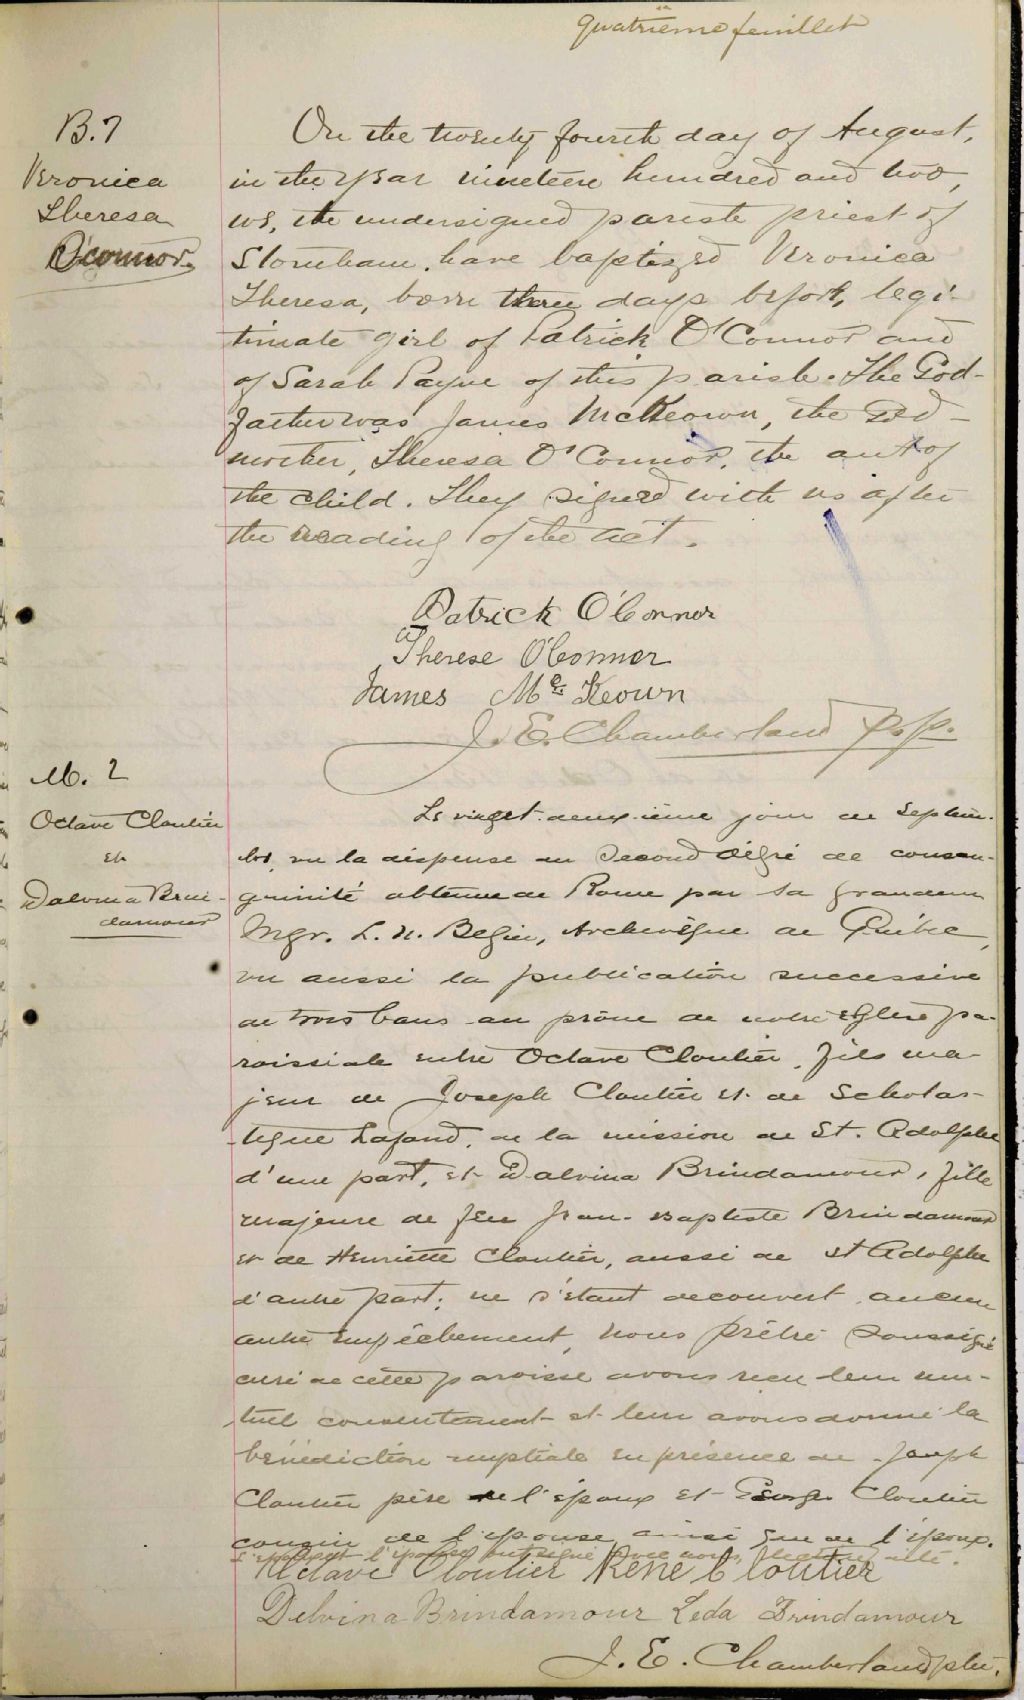 quatrième feuillet
B. 7
Veronica
Theresa
O'Connor.
On the twenty fourth day of August,
in the year nineteen hundred and two,
we, the undersigned parish priest of
Stoneham, have baptized Veronica
Theresa, born three days before, legi-
timate girl of Patrick O'Connor and
of Sarah Payne of this parish. The God-
father was James McKeown, the God-
mother, Theresa O'Connor, the aunt of
the child. They signed with us after
the reading of the act.
Patrick O'Connor
Therese O'Connor
James Mc Keown
J. E. Chamberland p.p.
M. 2
Octave Cloutier
et
Dalvina Brin-
damour
Le vingt-deuxième jour de septem-
bre, vu la dispense du second dégré de consan-
guinité obtenue de Rome par sa grandeur
Mgr. L. N. Begin, Archevêque de Québec,
vu aussi la publication successive
de trois bans au prône de notre église pa-
roissiale entre Octave Cloutier, fils ma-
jeur de Joseph Cloutier et de Scholas-
tique Lafond, de la mission de St. Adolphe
d'une part, et Dalvina Brindamour, fille
majeure de feu Jean-Baptiste Brindamour
et de Henriette Cloutier, aussi de St Adolphe
d'autre part; ne s'étant decouvert aucun
autre empêchement, nous prêtre soussigné
curé de cette paroisse avons reçu leur mu-
tuel consentement et leur avons donné la
bénédiction nuptiale en présence de Joseph
Cloutier père de l'époux et George Cloutier
cousin de l'épouse ainsi que de l'époux.
L'époux et l'épouse ont signé avec nous, lecture faite.
Octave Cloutier René Cloutier
Delvina Brindamour Leda Brindamour
J. E. Chamberland ptre.